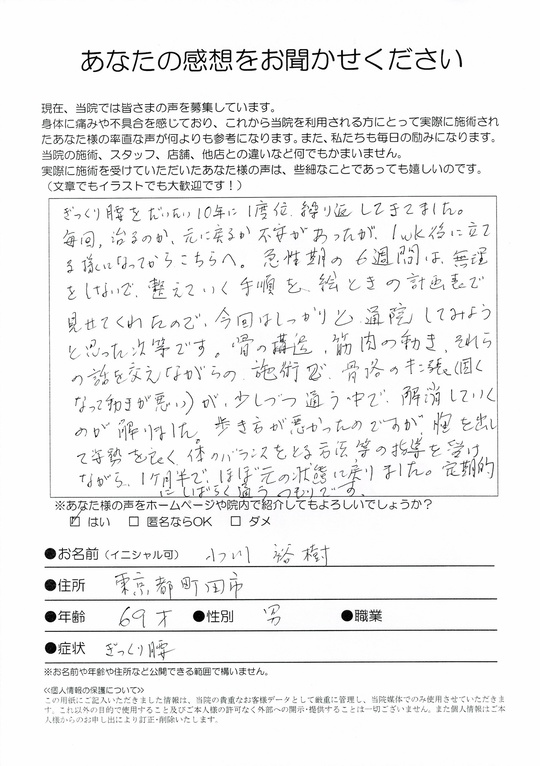 あなたの感想をお聞かせください
現在、当院では皆さまの声を募集しています。
身体に痛みや不具合を感じており、これから当院を利用される方にとって実際に施術され
たあなた様の率直な声が何よりも参考になります。また、私たちも毎日の励みになります。
当院の施術、スタッフ、店舗、他店との違いなど何でもかまいません。
実際に施術を受けていただいたあなた様の声は、些細なことであっても嬉しいのです。
（文章でもイラストでも大歓迎です！）
ぎっくり腰をだいたい10年に1度位、繰り返してきてました。
毎回、治るのか、元に戻るか不安があったが、1wk後に立て
る様になってからこちらへ。急性期の6週間は、無理
をしないで、整えていく手順を、絵ときの計画表で
見せてくれたので、今回はしっかりと通院してみよう
と思った次第です。骨の構造、筋肉の動き、それら
の話を交えながらの施術で、骨格の緊張(固く
なって動きが悪い)が、少しづつ通う中で、解消していく
のが解りました。歩き方が悪かったのですが、胸を出し
て姿勢を良く、体のバランスをとる方法、等の指導を受け
ながら、1ヶ月半で、ほぼ元の状態に戻りました。定期的
にしばらく通うつもりです。
※あなた様の声をホームページや院内で紹介してもよろしいでしょうか？
☑ はい □ 匿名ならOK □ ダメ
●お名前（イニシャル可） 小川 裕樹
●住所 東京都町田市
●年齢 69才 ●性別 男 ●職業
●症状 ぎっくり腰
※お名前や年齢や住所など公開できる範囲で構いません。
≪個人情報の保護について≫
この用紙にご記入いただきました情報は、当院の貴重なお客様データとして厳重に管理し、当院媒体でのみ使用させていただきま
す。これ以外の目的で使用すること及びご本人様の許可なく外部への開示・提供することは一切ございません。また個人情報はご本
人様からのお申し出により訂正・削除いたします。